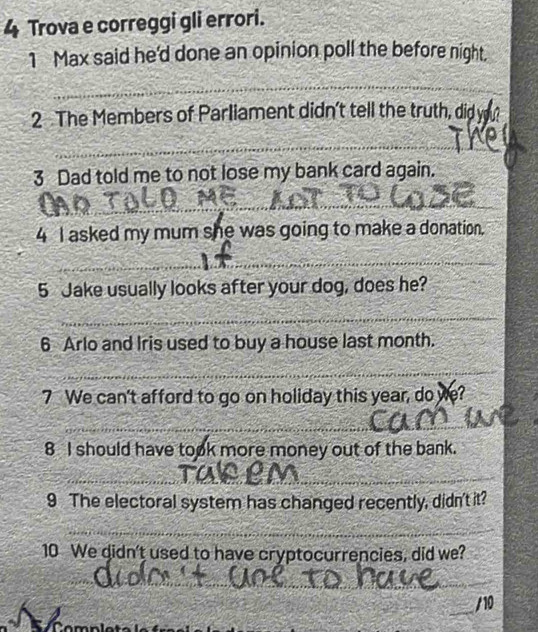 4 Trova e correggi gli errori.
1 Max said he'd done an opinion poll the before night.
2 The Members of Parliament didn't tell the truth, did you?
They
3 Dad told me to not lose my bank card again.
DAD TOLD ME NOT TO LOSE
4 I asked my mum she was going to make a donation.
if
5 Jake usually looks after your dog, does he?
6 Arlo and Iris used to buy a house last month.
7 We can't afford to go on holiday this year, do we?
can we
8 I should have took more money out of the bank.
9 The electoral system has changed recently, didn't it?
10 We didn't used to have cryptocurrencies, did we?
didn't to have
/10